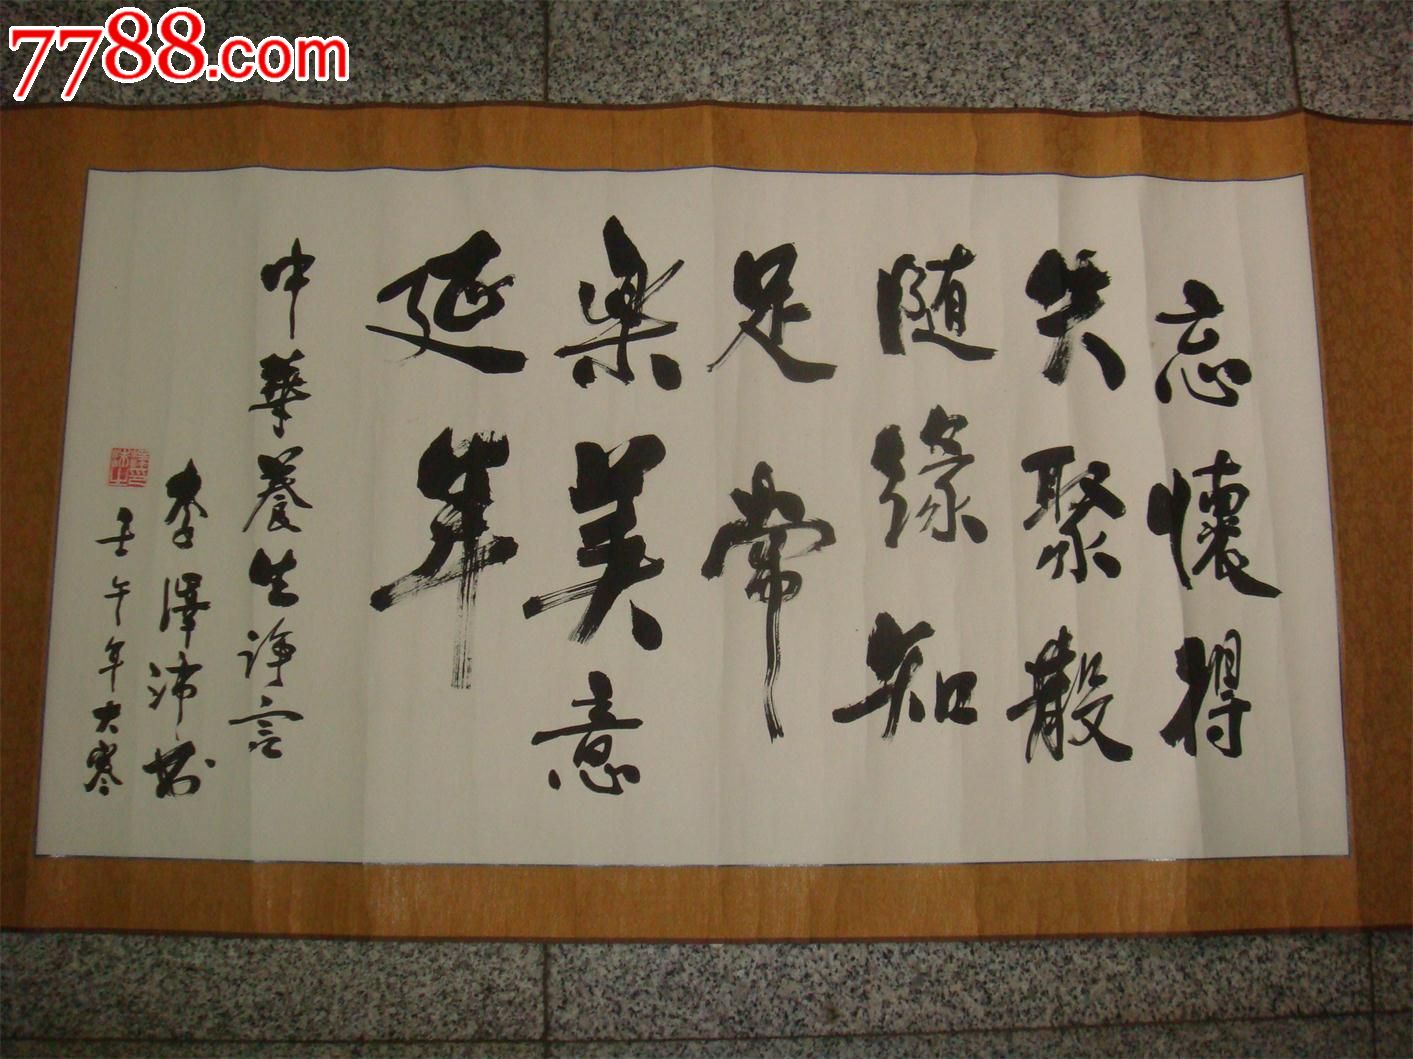 7788.com
忘懷得
失聚散
随緣知
足常
樂美意
延年
中華養生諍言
李澤沛
壬午年大寒